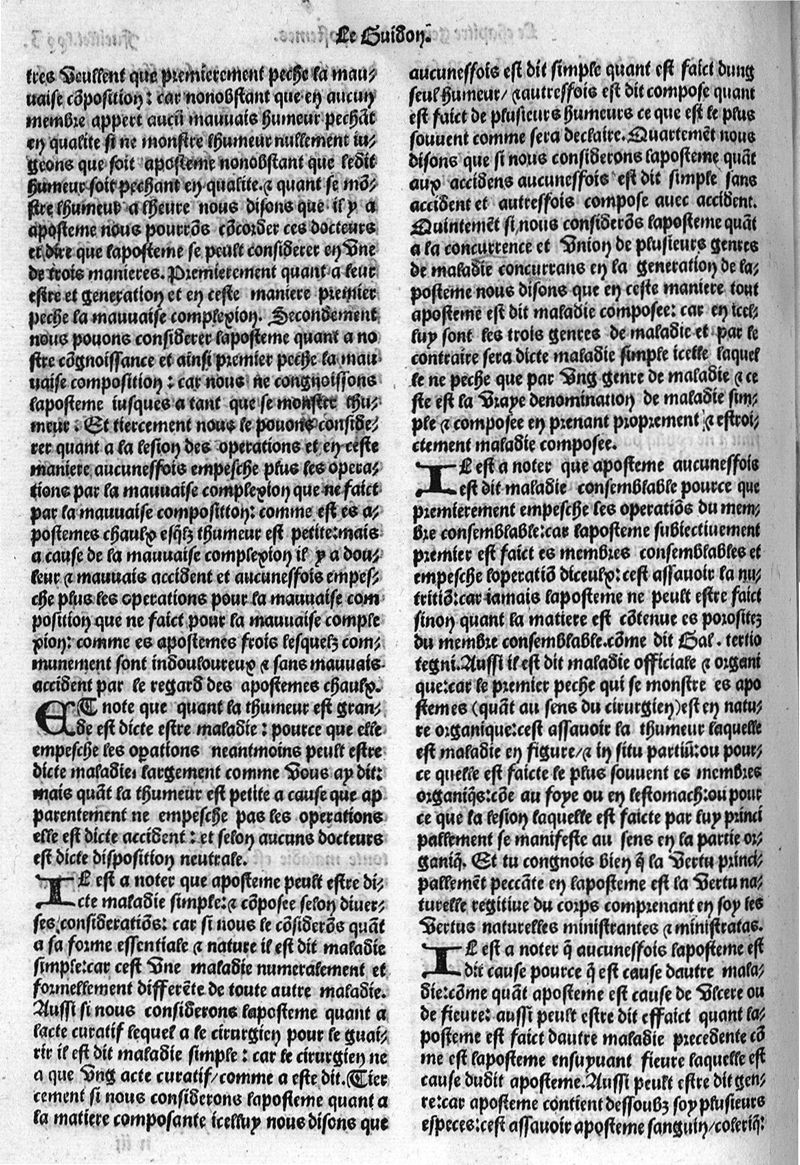 Le Guidon.
tres veullent que premierement peche la mau⸗
uaise cõposition: car nonobstant que en aucun
membre appert aucũ mauuais humeur pechãt
en qualite si ne monstre lhumeur nullement iu⸗
geons que soit aposteme nonobstant que ledit
humeur soit pechant en qualite. ⁊ quant se mõ⸗
stre lhumeur a lheure nous disons que il y a
aposteme nous pourrõs cõcorder ces docteurs
et dire que laposteme se peult considerer en vne
de trois manieres. Premierement quant a leur
estre et generation et en ceste maniere premier
peche la mauuaise complexion. Secondement
nous pouons considerer laposteme quant a no
stre cõgnoissance et ainsi premier peche la mau
uaise composition: car nous ne congnoissons
laposteme iusques a tant que se monstre thu⸗
meur. Et tiercement nous le pouons conside⸗
rer quant a la lesion des operations et en ceste
maniere aucunessois empesche plus les opera⸗
tions par la mauuaise complexion que ne faict
par la mauuaise composition: comme est es a⸗
postemes chaulx esq̃lz thumeur est petite: mais
a cause de la mauuaise complexion il y a dou⸗
leur ⁊ mauuais accident et aucunessois empes⸗
che plus les operations pour la mauuaise com
position que ne faict pour la mauuaise comple
xion: comme es apostemes frois lesquelz com⸗
munement sont indouloureux ⁊ sans mauuais
accident par le regard des apostemes chaulx.
ET note que quant la thumeur est gran⸗
de est dicte estre maladie: pource que elle
empesche les opations neantmoins peult estre
dicte maladie, largement comme vous ay dit:
mais quãt la thumeur est petite a cause que ap
parentement ne empesche pas les operations
elle est dicte accident: et selon aucuns docteurs
est dicte disposition neutrale.
IL est a noter que aposteme peult estre di⸗
cte maladie simple: ⁊ cõposee selon diuer⸗
ses considerations: car si nous le cõsiderõs quãt
a sa forme essentiale ⁊ nature il est dit maladie
simple: car cest vne maladie numeralement et
formellement differẽte de toute autre maladie.
Aussi si nous considerons laposteme quant a
lacte curatif lequel a le cirurgien pour le guai⸗
rir il est dit maladie simple: car le cirurgien ne
a que vng acte curatif/ comme a este dit. Tier
cement si nous considerons laposteme quant a
la matiere composante icelluy nous disons que
aucunessois est dit simple quant est faict dung
seul humeur/ ⁊ autressois est dit compose quant
est faict de plusieurs humeurs ce que est le plus
souuent comme sera declaire. Quartemẽt nous
disons que si nous considerons laposteme quãt
aux accidens aucunessois est dit simple sans
accident et autressois compose auec accident.
Quintemẽt si nous considerõs laposteme quãt
a la concurrence et vnion de plusieurs genres
de maladie concurrans en la generation de la⸗
posteme nous disons que en ceste maniere tout
aposteme est dit maladie composee: car en icel⸗
luy sont les trois genres de maladie et par le
contraire sera dicte maladie simple icelle laquel
le ne peche que par vng genre de maladie ⁊ ce
ste est la vraye denomination de maladie sim⸗
ple ⁊ composee en prenant proprement ⁊ estroi⸗
ctement maladie composee.
IL est a noter que aposteme aucunessois
est dit maladie consemblable pource que
premierement empesche les operatiõs du mem⸗
bre consemblable: car laposteme subiectiuement
premier est faict es membres consemblables et
empesche loperatiõ diceulx: cest assauoir la nu⸗
tritiõ: car iamais laposteme ne peult estre faict
sinon quant la matiere est cõtenue es porositez
du membre consemblable. cõme dit Gal. tertio
tegni. Aussi il est dit maladie officiale ⁊ organi
que: car le premier peche qui se monstre es apo
stemes (quãt au sens du cirurgien) est en natu⸗
re organique: cest assauoir la thumeur laquelle
est maladie en figure/ ⁊ in situ partiũ: ou pour⸗
ce quelle est faicte le plus souuent es membres
organiq̃s: cõe au foye ou en lestomach: ou pour
ce que la lesion laquelle est faicte par luy princi
pallement se manifeste au sens en la partie or⸗
ganiq̃. Et tu congnois bien q̃ la vertu princi⸗
pallemẽt peccãte en laposteme est la vertu na⸗
turelle regitiue du corps comprenant en soy les
vertus naturelles ministrantes ⁊ ministratas.
IL est a noter q̃ aucunessois laposteme est
dit cause pource q̃ est cause dautre mala⸗
die: cõme quãt aposteme est cause de vlcere ou
de fieure: aussi peult estre dit effaict quant la⸗
posteme est faict dautre maladie precedente cõ
me est laposteme ensuyuant fieure laquelle est
cause dudit aposteme. Aussi peult estre dit gen⸗
re: car aposteme contient dessoubz soy plusieurs
especes: cest assauoir aposteme sanguin/ coleriq̃: